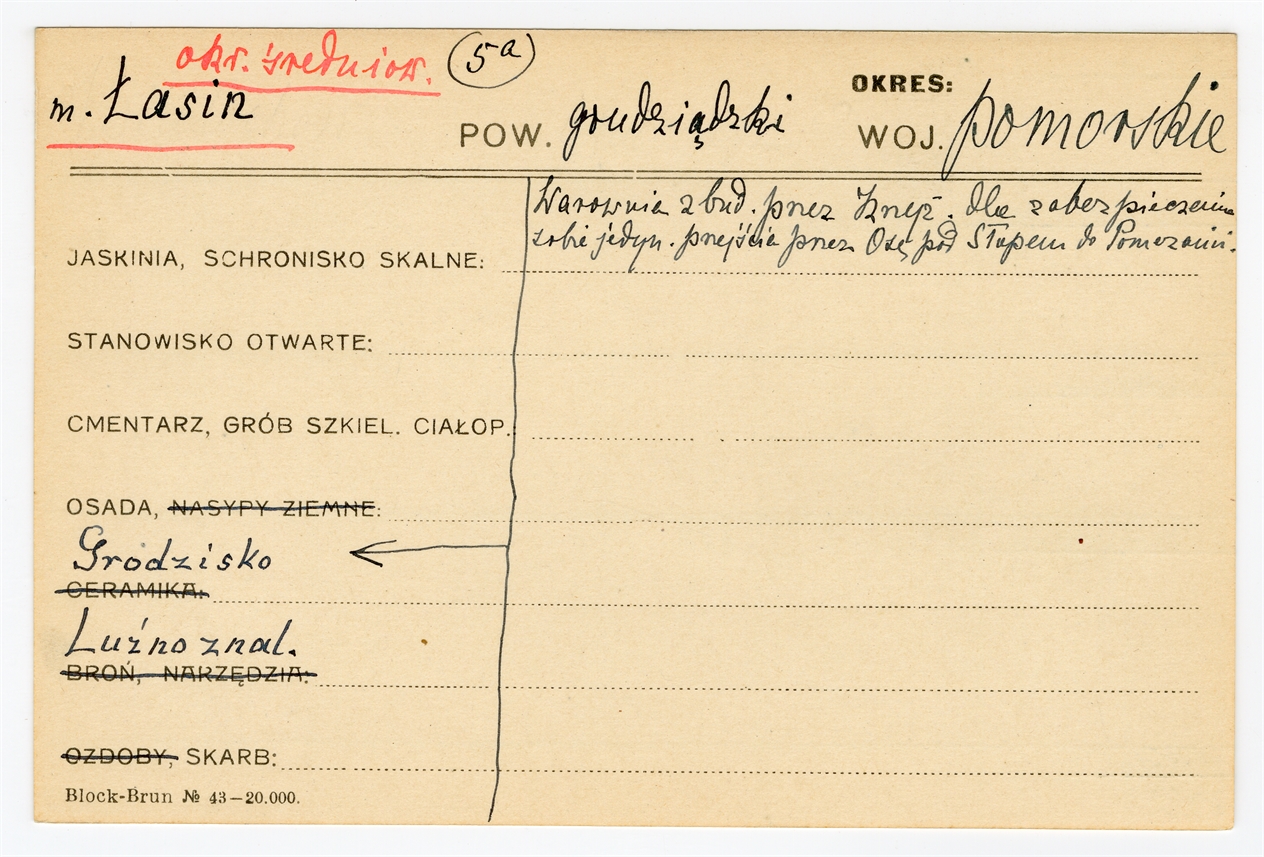 okr. średniow. 5a
m. Łasin
OKRES:
POW. grudziądzki WOJ. pomorskie
Warownia zbud. przez dla zabezpieczenia
sobie jedyn. przejścia przez Osę pod Słupem do Pomezanii.
JASKINIA, SCHRONISKO SKALNE:
STANOWISKO OTWARTE:
CMENTARZ, GRÓB SZKIEL. CIAŁOP.
OSADA, NASYPY ZIEMNE:
Grodzisko
CERAMIKA:
Luźno znal.
BROŃ, NARZĘDZIA:
OZDOBY, SKARB:
Block-Brun № 43—20.000.